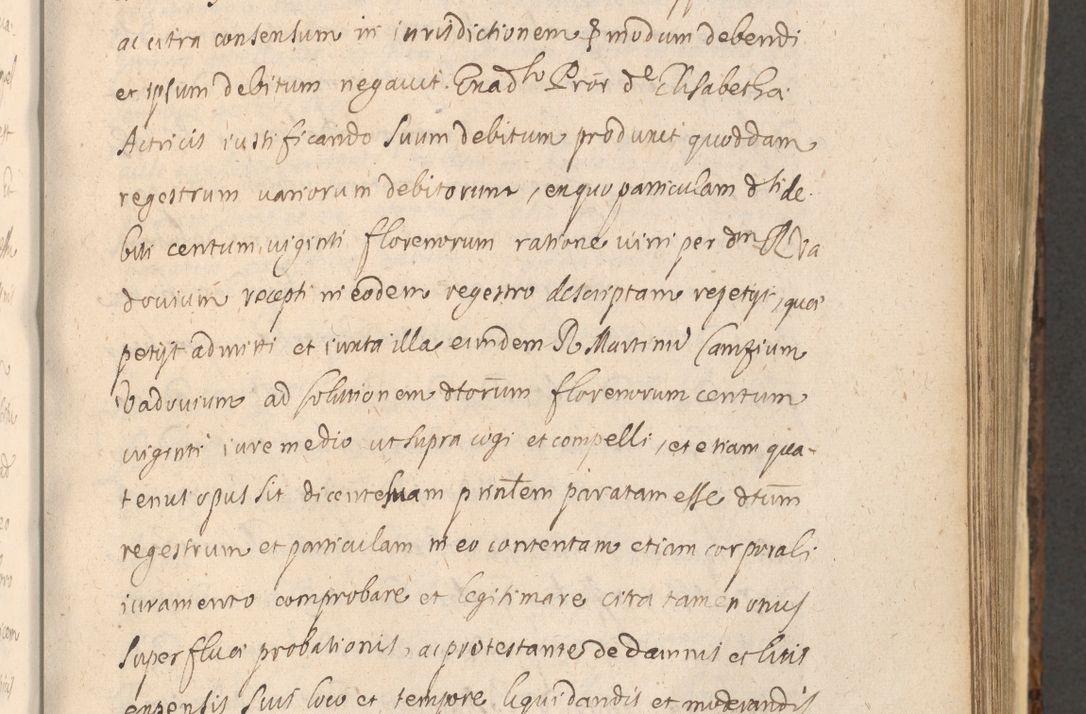 ac citra consensum in iurisdictionem p modum debendi
et ipsum debitum negavit. Enadho Prőr de Elisabetha
Actricis iustificando suum debitum produxit quoddam
regestrum variorum debitorum, ex quo particulam dti de
biti centum viginti florenorum ratione vini per dnm R Va
dovium recepti in eodem regestro descriptam repetijt, quae
petijt admitti et iuxta illa eundem R Martinu Camzium
Vadovium ad solutionem dtorum florenorum centum
viginti iure medio ut supra cogi et compelli, et etiam qua-
tenus opus sit dicente suam prinlem paratam esse dtum
regestrum et particulam in eo contentam etiam corporali
iuramento comprobare et legitimare citra tamen onus
superfluae probationis, ac protestante de damnis et litis
expensis suis loco et tempore liquidandis et moderandis